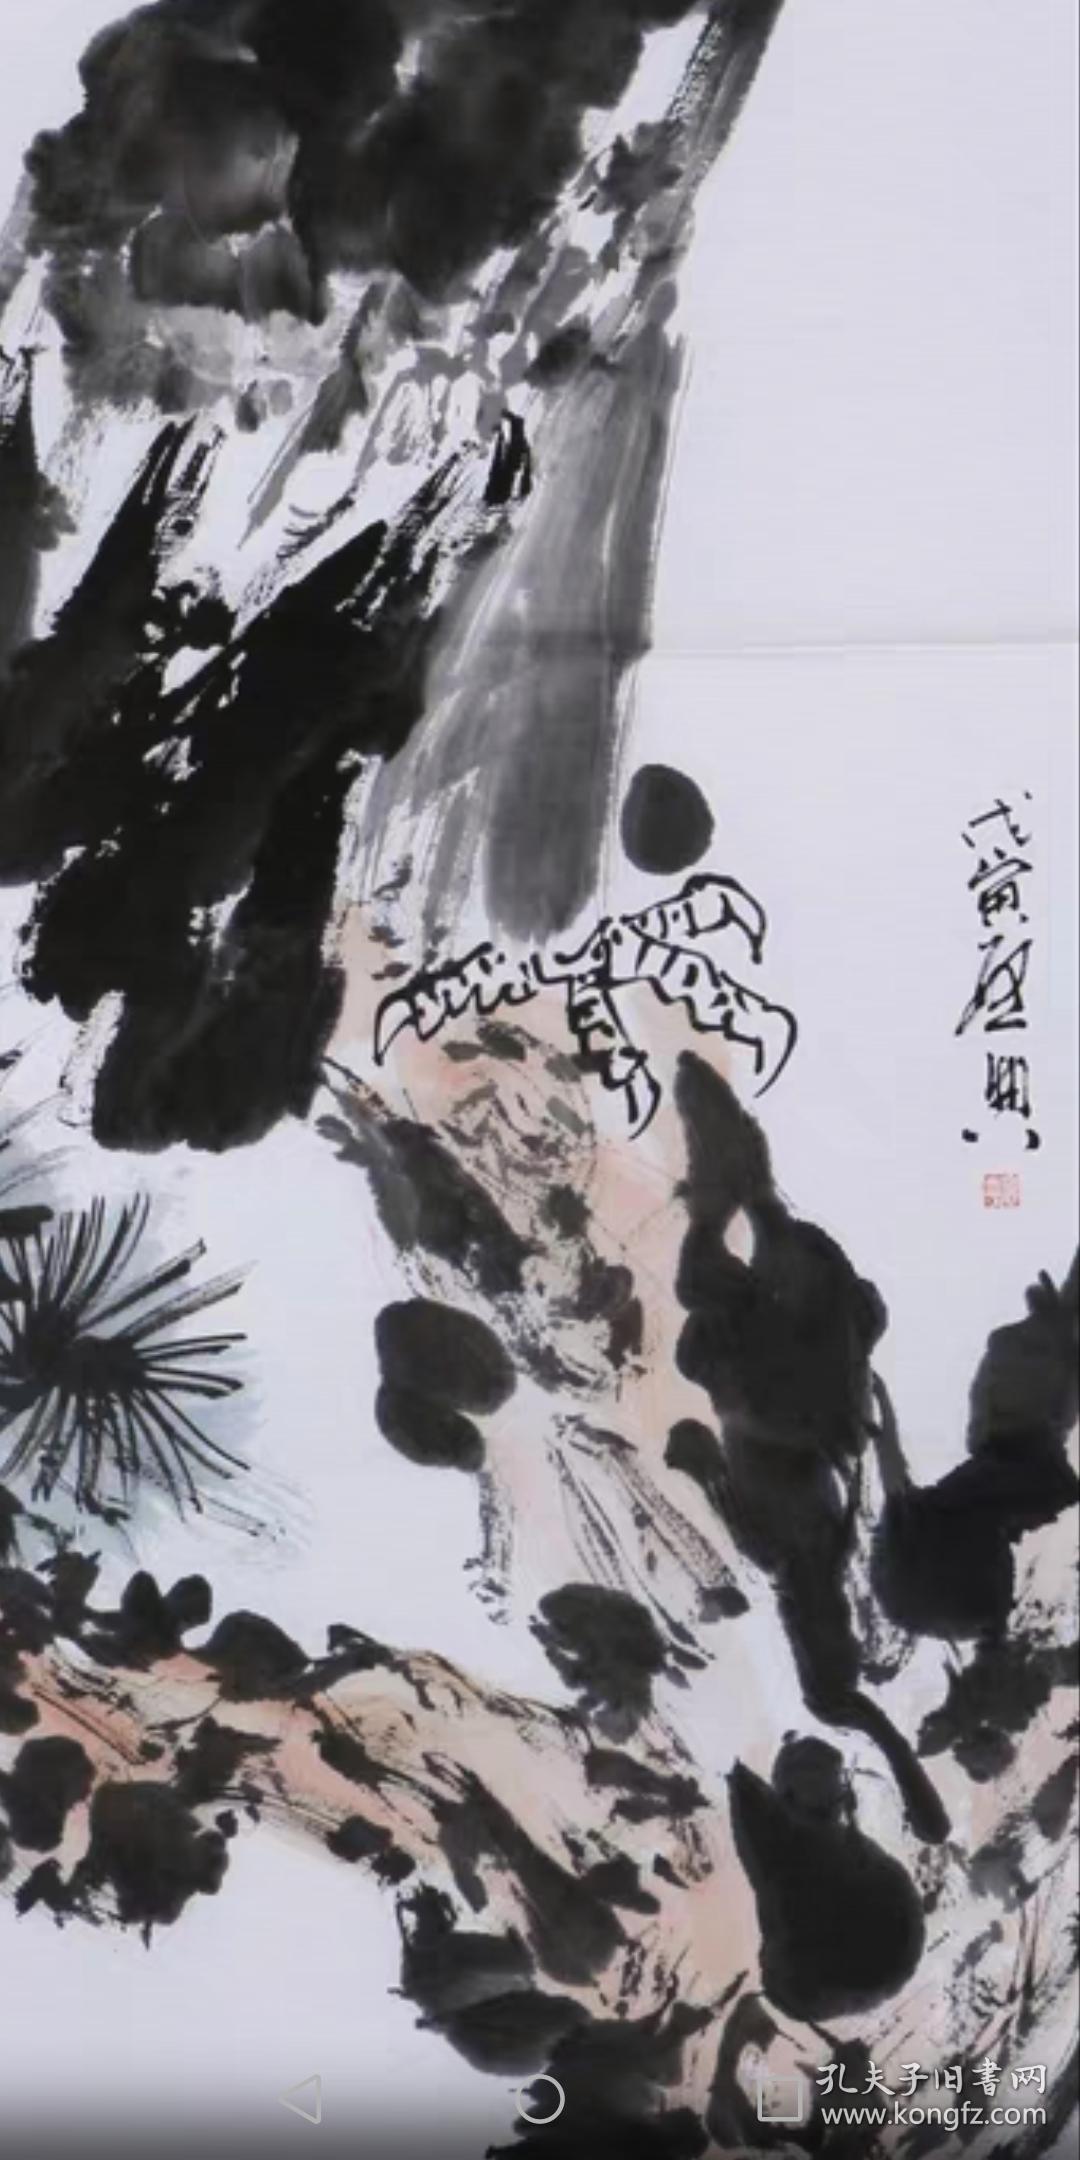 戊寅啟興
孔夫子旧書网
www.kongfz.com